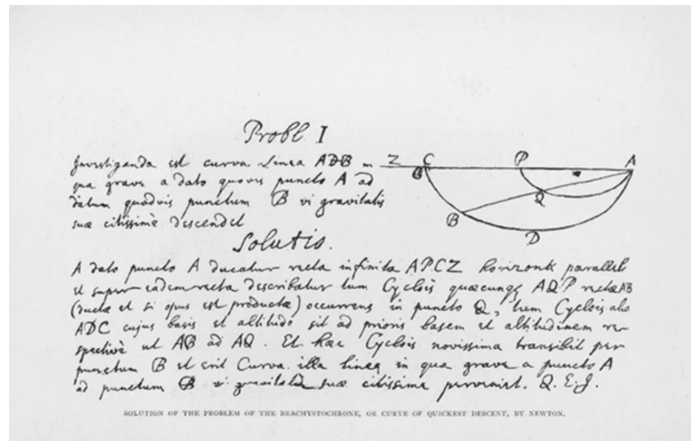 Probl. I
Investiganda est curva Linea ADB in
qua grave a dato quovis puncto A ad
datum quodvis punctum B vi gravitatis
suæ citissimè descendet
Z C P A
B Q
B D
Solutio.
A dato puncto A ducatur recta infinita APCZ horizonti parallela
et super eadem recta describatur tum Cyclois quæcunq AQP rectæ AB
(ductæ et si opus est productæ) occurrens in puncto Q, tum Cyclois alia
ADC cujus basis et altitudo sit ad prioris basem et altitudinem re-
spectivè ut AB ad AQ. Et hæc Cyclois novissima transibit per
punctum B et erit Curva illa linea in qua grave a puncto A
ad punctum B vi gravitatis suæ citissime perveniet. Q. E. I.
SOLUTION OF THE PROBLEM OF THE BRACHYSTOCHRONE, OR CURVE OF QUICKEST DESCENT, BY NEWTON.